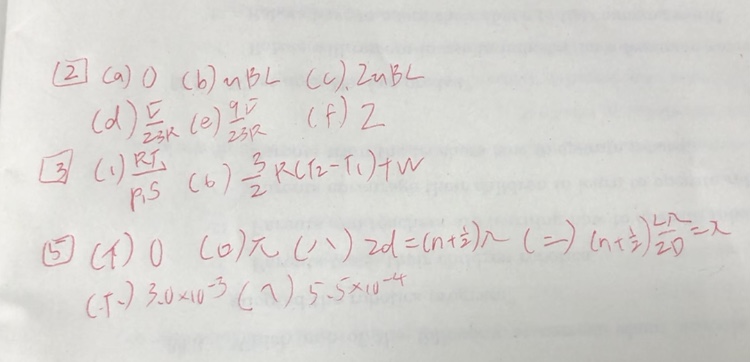 [2] (a) 0 (b) uBL (c). 2uBL
(d) V/23R (e) 9V/23R (f) 2
[3] (1) RT₁/p₁S (6) 3/2 R(T₂-T₁)+W
[5] (イ) 0 (ロ) π (ハ) 2d=(n+1/2)λ (ニ) (n+1/2)Lλ/2D=x
(ホ) 3.0×10⁻³ (ヘ) 5.5×10⁻⁴